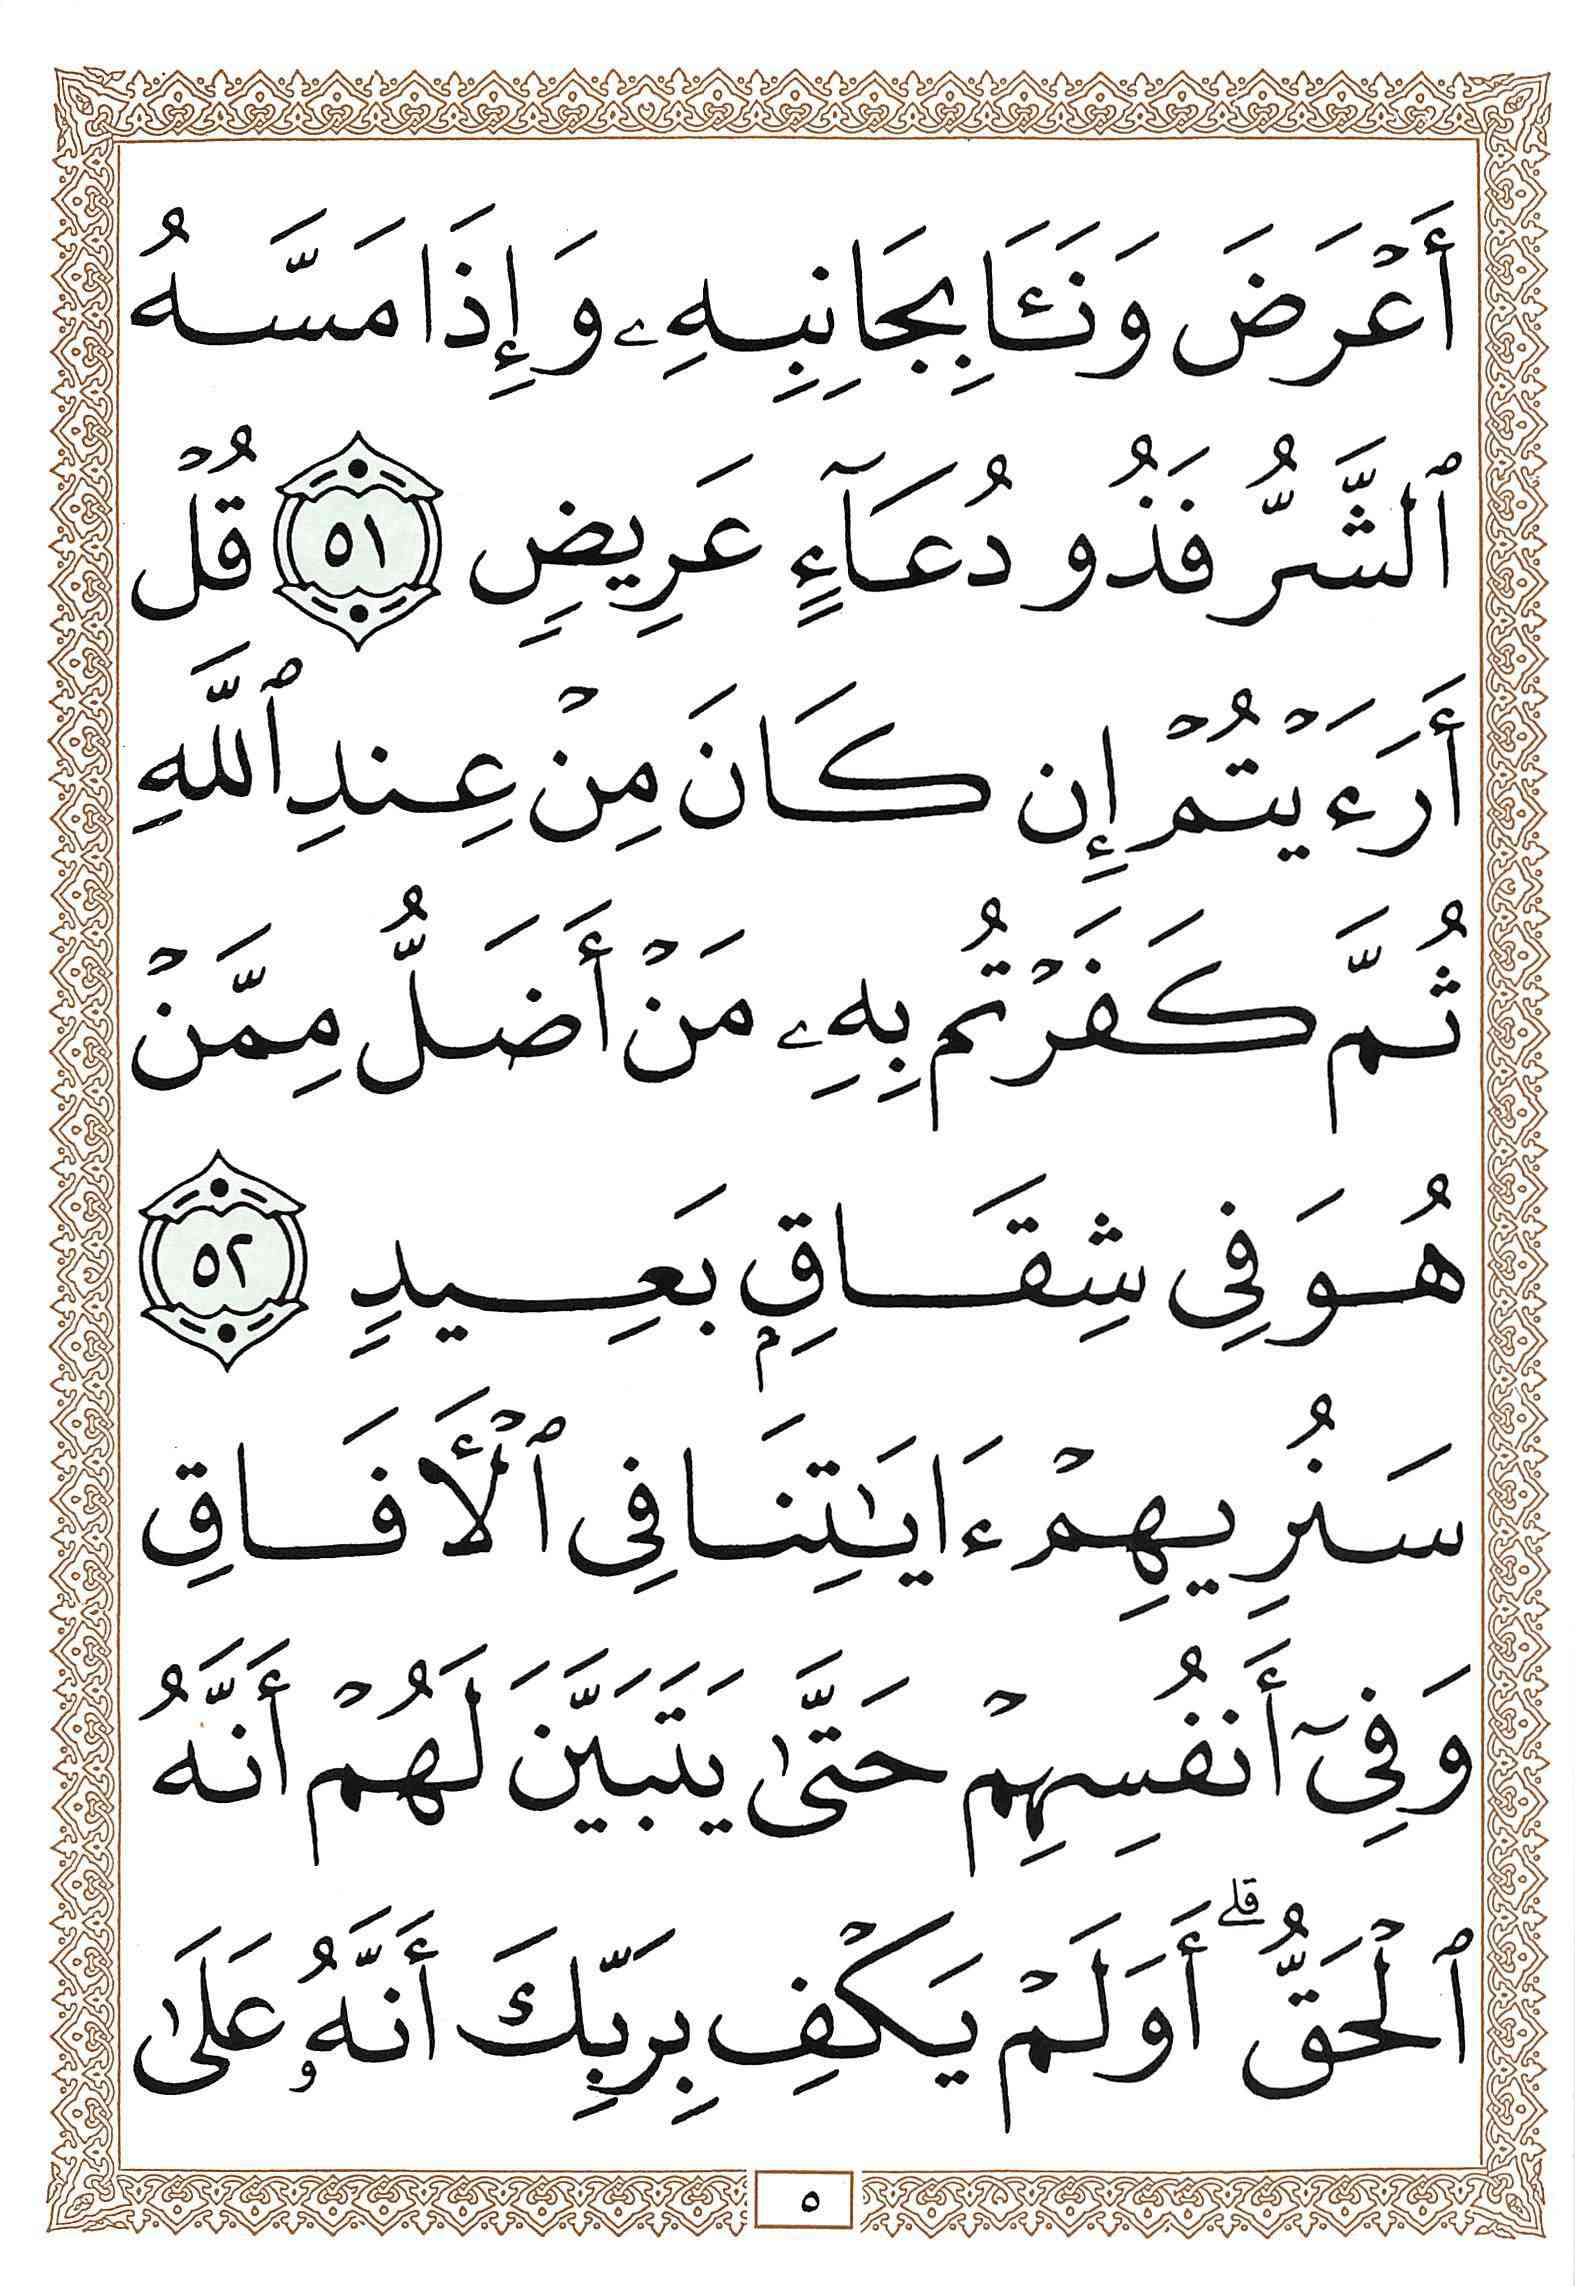 أَعْرَضَ وَنَـَٔا بِجَانِبِهِۦ وَإِذَا مَسَّهُ
ٱلشَّرُّ فَذُو دُعَآءٍ عَرِيضٍ ٥١ قُلْ
أَرَءَيْتُمْ إِن كَانَ مِنْ عِندِ ٱللَّهِ
ثُمَّ كَفَرْتُم بِهِۦ مَنْ أَضَلُّ مِمَّنْ
هُوَ فِى شِقَاقٍۭ بَعِيدٍ ٥٢
سَنُرِيهِمْ ءَايَٰتِنَا فِى ٱلْأَفَاقِ
وَفِىٓ أَنفُسِهِمْ حَتَّىٰ يَتَبَيَّنَ لَهُمْ أَنَّهُ
ٱلْحَقُّ ۗ أَوَلَمْ يَكْفِ بِرَبِّكَ أَنَّهُۥ عَلَىٰ
٥